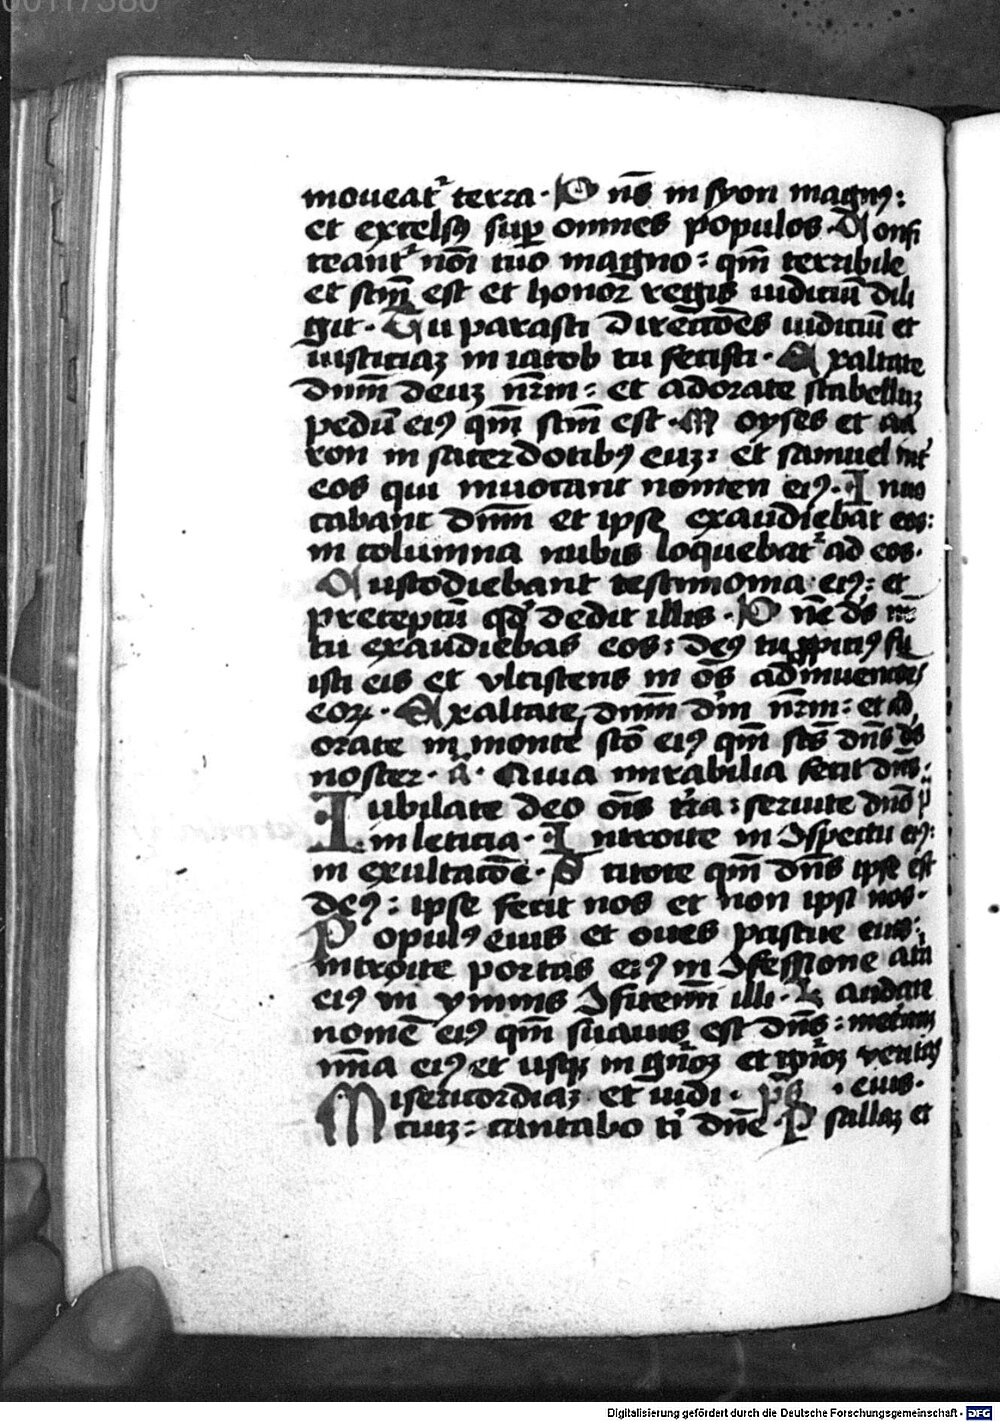 00117380
moueat᷑ terra · D n̄s in syon magnꝰ :
et excelsꝰ sup̱ omnes populos · Confi
teant᷑ nōi tuo magno : qm̄ terribile
et sc̄m est et honor regis iudiciū dili
git · Tu parasti directōes iudiciū et
iusticiaꝫ in iacob tu fecisti · Exaltate
dn̄m deuꝫ nr̄m : et adorate scabelluꝫ
pedū eiꝰ qm̄ sc̄m est · Moyses et aa
ron in sacerdotibꝰ euꝫ : et samuel int̕
eos qui inuocant nomen eiꝰ · Inuo
cabant dn̄m et ipse exaudiebat eos :
in columna nubis loquebat᷑ ad eos ·
Custodiebant testimonia eiꝰ : et
preceptū qd̕ dedit illis · D n̄e ds̄ nr̄
tu exaudiebas eos : deꝰ tu ꝓpiciꝰ fu
isti eis et vlciscens in oēs adinuenciōes
eoꝝ · Exaltate dn̄m dm̄ nr̄m : et ad
orate in monte sc̄o eiꝰ qm̄ sc̄s dn̄s ds̄
noster · a̅ · Quia mirabilia fecit dn̄s ·
Iubilate deo oīs tr̄a : seruite dn̄o
in leticia · Introite in ꝯspectu eiꝰ :
in exultatōe · Scitote qm̄ dn̄s ipse est
deꝰ : ipse fecit nos et non ipsi nos ·
Populꝰ eius et oues pascue eius :
introite portas eiꝰ in ꝯfessione atri
eiꝰ in ymnis ꝯfitemī illi · Laudate
nomē eiꝰ qm̄ suauis est dn̄s : in etern
mīa eiꝰ et usqꝫ in gn̄róꝫ et gn̄róꝫ veritas
Misericordiaꝫ et iudi · ps̄ · eius ·
ciuꝫ : cantabo ti dn̄e · Psallaꝫ et
Digitalisierung gefördert durch die Deutsche Forschungsgemeinschaft - DFG